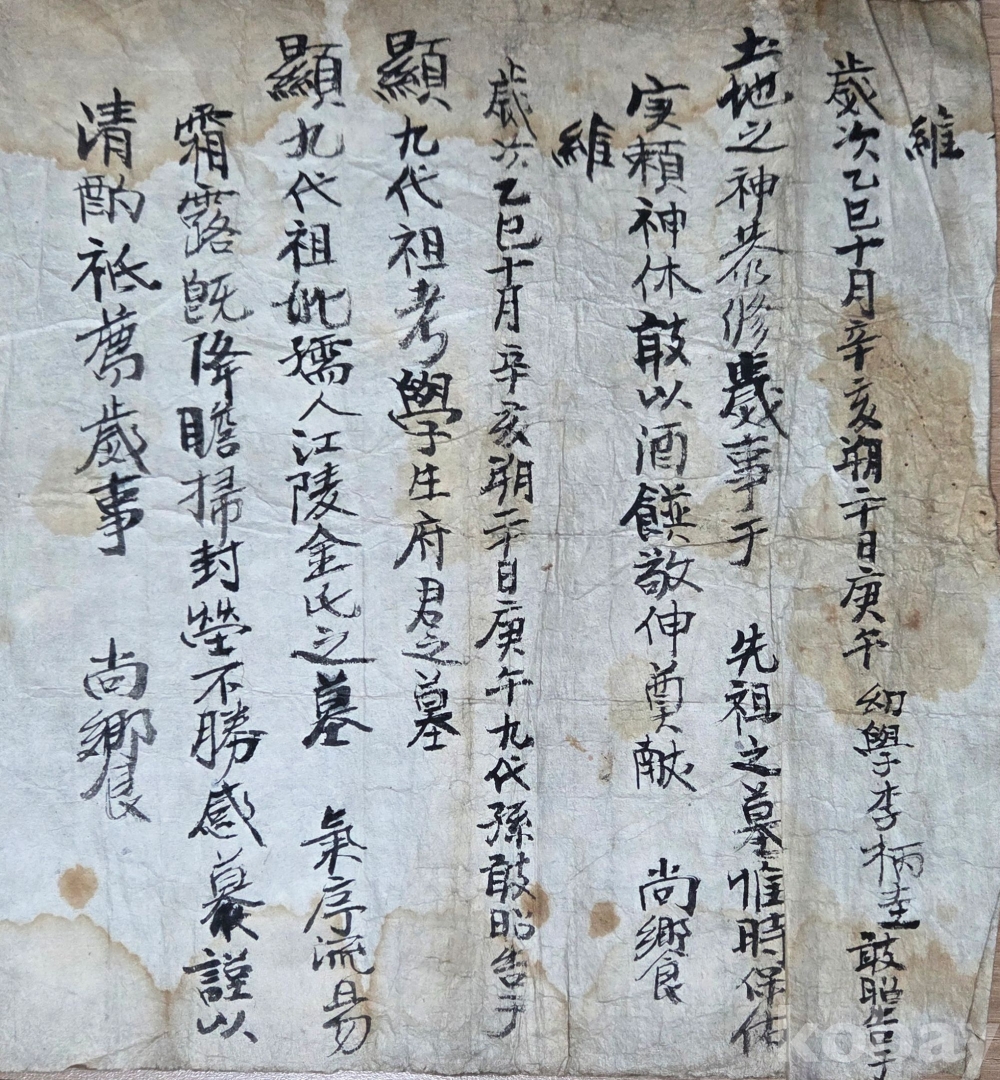 維
歲次乙巳十月辛亥朔二十日庚午 幼學李柄圭 敢昭告于
土地之神恭修歲事于 先祖之墓惟時保佑
実賴神休敢以酒饌敬伸奠献 尚饗
維
歲次乙巳十月辛亥朔二十日庚午九代孫敢昭告于
顯九代祖考學生府君之墓
顯九代祖妣孺人江陵金氏之墓 氣序流易
霜露旣降瞻掃封塋不勝感慕謹以
清酌祗薦歲事 尚饗
kobay